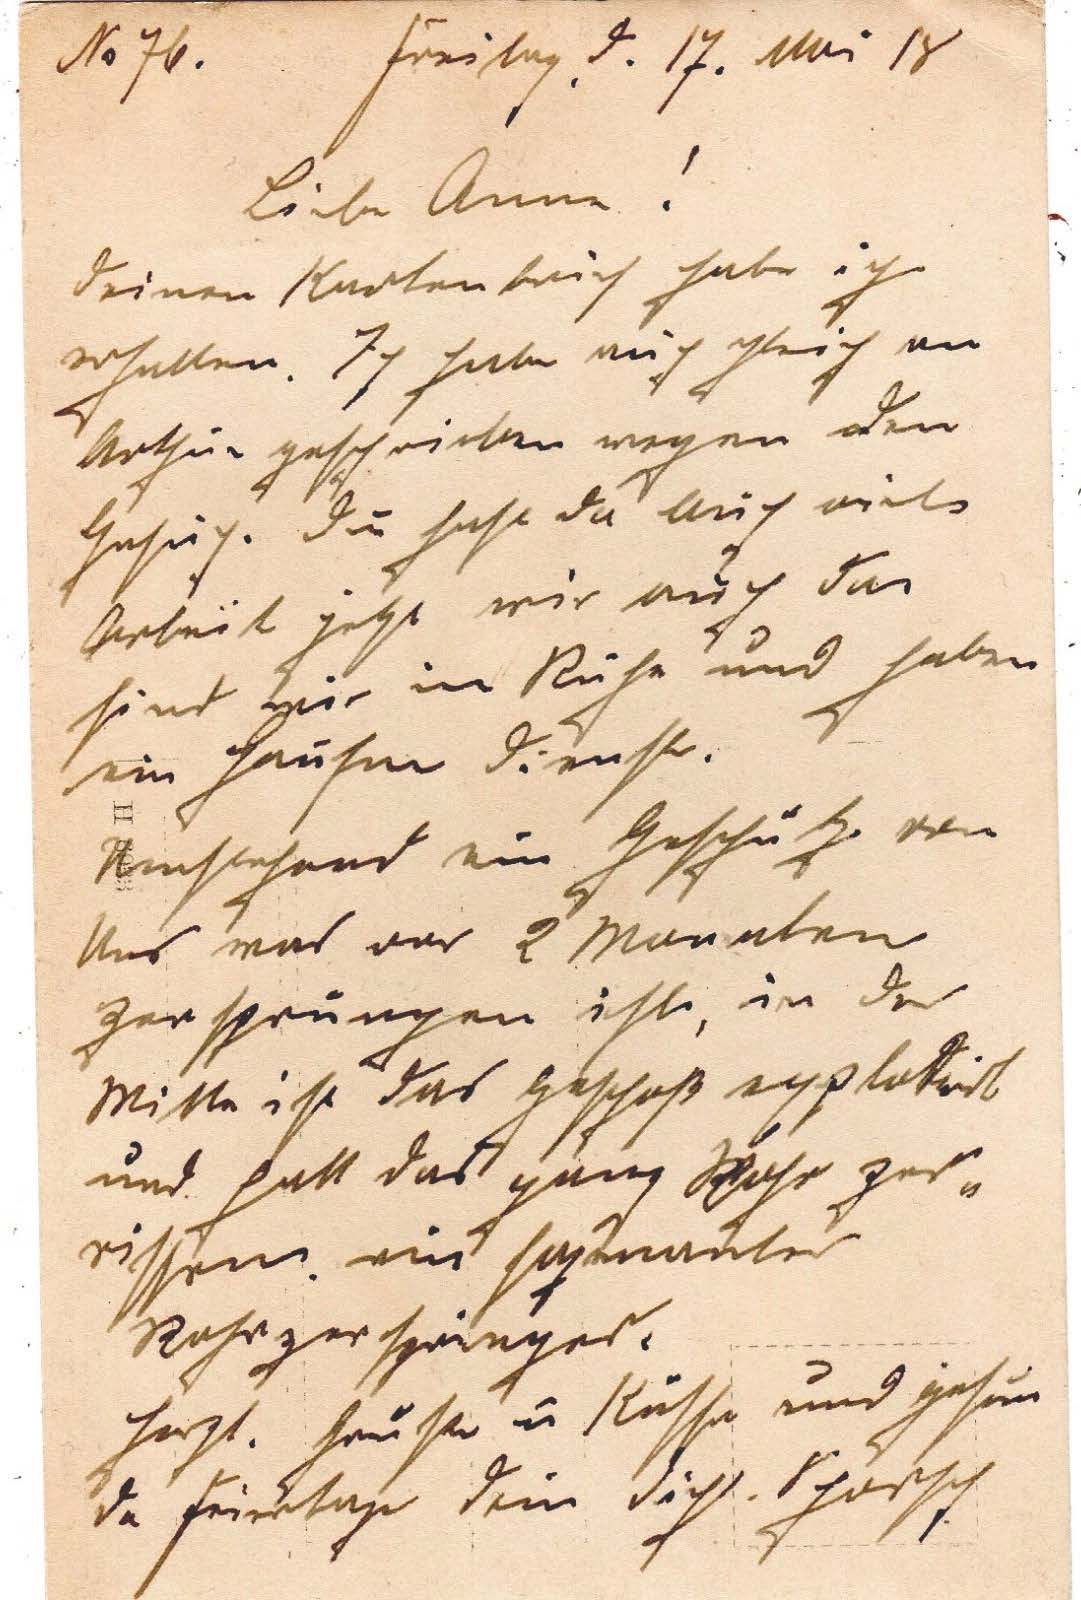 No 76. Freitag, d. 17. Mai 18
Liebe Anna!
Deinen Kartenbrief habe ich
erhalten. Ich habe auch gleich an
Arthur geschrieben wegen den
Gesuch. Du hast da auch viels
Arbeit jetzt wir auch da
sind wir in Ruhe und haben
ein Haufen Dienst.
Umstehend ein Geschütz von
Uns was vor 2 Monaten
zersprungen ist, in der
Mitte ist das Geschoß explodirt
und hatt das ganz Rohr zer„
rissen. ein sogenannter
Rohrzerspringer.
Herzl. Grüße u Küsse und gesun
de Feiertage Dein Dich.